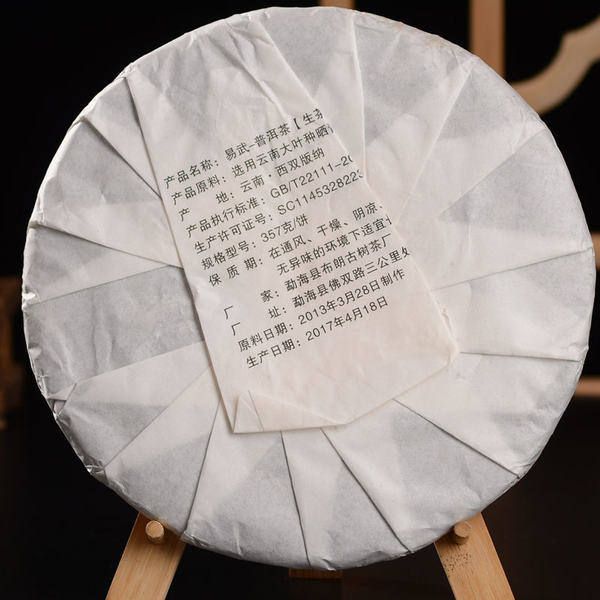 产品名称：易武-普洱茶【生茶
产品原料：选用云南大叶种晒
产 地：云南 西双版纳
产品执行标准：GB/T22111-20
生产许可证号：SC1145328223
规格型号：357克/饼
保 质 期：在通风、干燥、阴凉、
无异味的环境下适宜长
厂 家：勐海县布朗古树茶厂
厂 址：勐海县佛双路三公里处
原料日期：2013年3月28日制作
生产日期：2017年4月18日